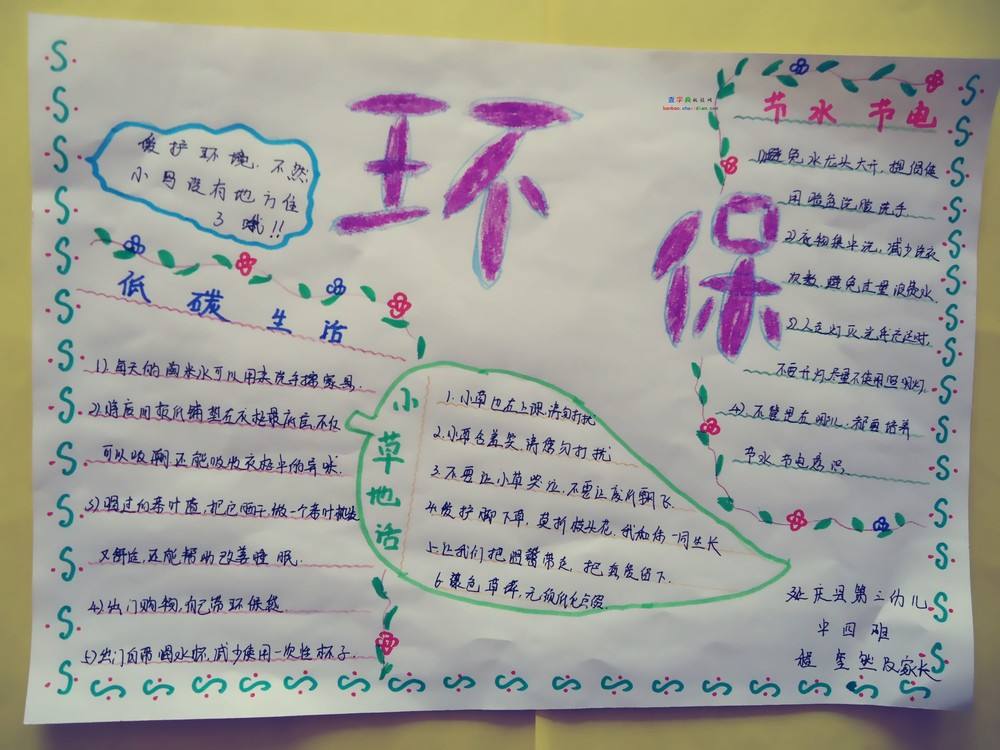 环保
爱护环境,不然,
小鸟没有地方住
了哦!!
低碳生活
1).每天的淘米水可以用来洗手擦家具.
2).将废旧报纸铺垫在衣柜最底层,不仅
可以吸潮,还能吸收衣柜中的异味.
3)喝过的茶叶渣,把它晒干,做一个茶叶枕头
又舒适,还能帮助改善睡眠.
4).出门购物,自己带环保袋.
5)出门自带喝水杯,减少使用一次性杯子.
小草地话
1.小草也在上课,请勿打扰
2.小草含羞笑,请您勿打扰
3.不要让小草哭泣,不要让废片飘飞.
4.爱护脚下草,莫折枝头花,我和你一同生长
5.让我们把脚留带走,把爱留下.
6.绿色草坪,无须点假.
查字典板报网
banbao.chazidian.com
节水 节电
1)避免水龙头大开,提倡使
用脸盆洗脸洗手
2)衣物集中洗,减少洗衣
次数,避免过量浪费水.
3)人走灯灭,光线充足时,
不要开灯尽量不使用照明灯.
4).不管是在哪儿,都要培养
节水节电意识.
延庆县第三幼儿
中四班
程 然及家长